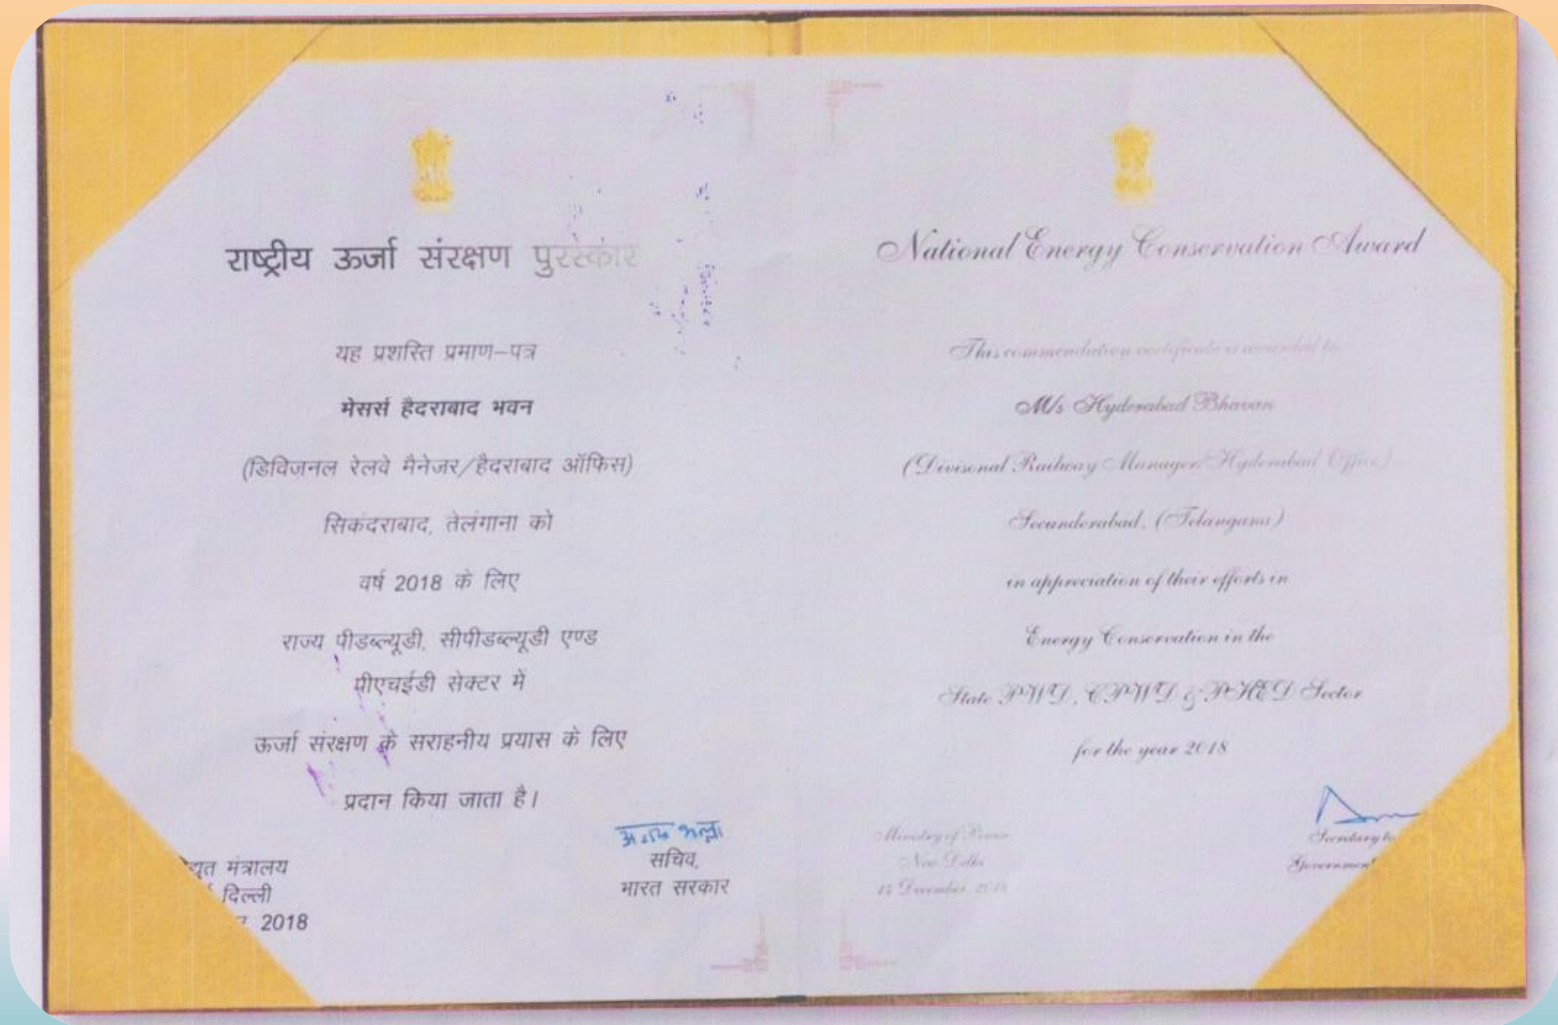 राष्ट्रीय ऊर्जा संरक्षण पुरस्कार
यह प्रशस्ति प्रमाण–पत्र
मेसर्स हैदराबाद भवन
(डिविज़नल रेलवे मैनेजर/हैदराबाद ऑफिस)
सिकंदराबाद, तेलंगाना को
वर्ष 2018 के लिए
राज्य पीडब्ल्यूडी, सीपीडब्ल्यूडी एण्ड
पीएचईडी सेक्टर में
ऊर्जा संरक्षण के सराहनीय प्रयास के लिए
प्रदान किया जाता है।
सचिव,
भारत सरकार
मंत्रालय
दिल्ली
2018
National Energy Conservation Award
This commendation certificate is awarded to
M/s Hyderabad Bhavan
(Divisonal Railway Manager/Hyderabad Office)
Secunderabad, (Telangana)
in appreciation of their efforts in
Energy Conservation in the
State PWD, CPWD & PHED Sector
for the year 2018
Ministry of Power
New Delhi
14 December, 2018
Secretary to
Government